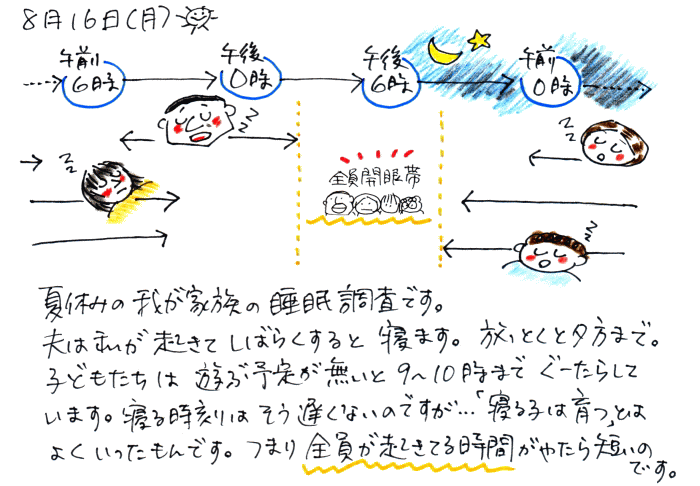 8月16日(月)
午前
6時
午後
0時
午後
6時
午前
0時
zzz
zz
zz
zzz
全員開眼帯
夏休みの我が家族の睡眠調査です。
夫は私が起きてしばらくすると寝ます。放っとくと夕方まで。
子どもたちは遊ぶ予定が無いと9〜10時までぐーたらして
います。寝る時刻はそう遅くないのですが…「寝る子は育つ」とは
よくいったもんです。つまり全員が起きてる時間がやたら短いの
です。